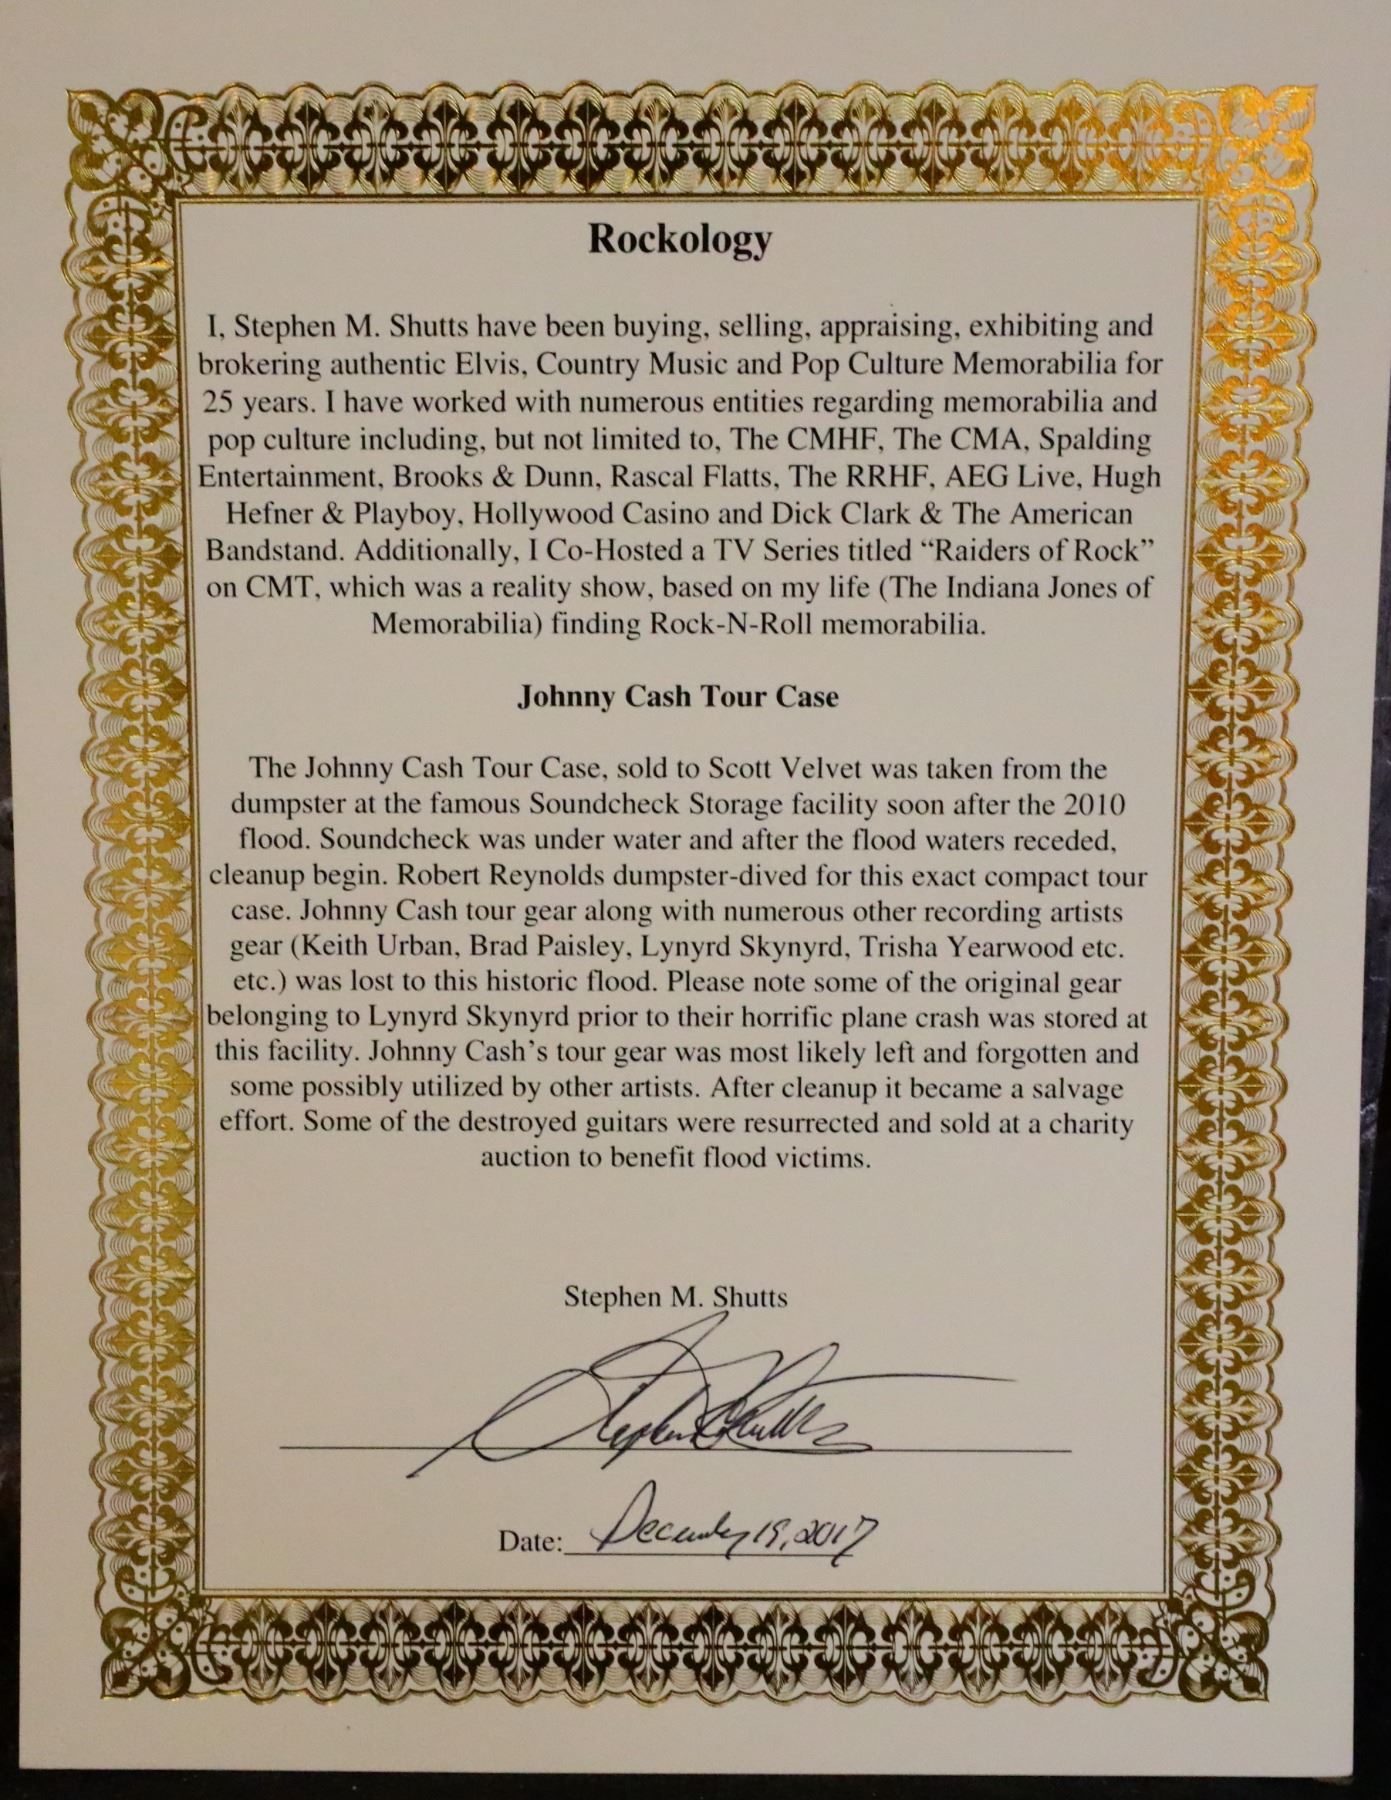 Rockology
I, Stephen M. Shutts have been buying, selling, appraising, exhibiting and
brokering authentic Elvis, Country Music and Pop Culture Memorabilia for
25 years. I have worked with numerous entities regarding memorabilia and
pop culture including, but not limited to, The CMHF, The CMA, Spalding
Entertainment, Brooks & Dunn, Rascal Flatts, The RRHF, AEG Live, Hugh
Hefner & Playboy, Hollywood Casino and Dick Clark & The American
Bandstand. Additionally, I Co-Hosted a TV Series titled “Raiders of Rock”
on CMT, which was a reality show, based on my life (The Indiana Jones of
Memorabilia) finding Rock-N-Roll memorabilia.
Johnny Cash Tour Case
The Johnny Cash Tour Case, sold to Scott Velvet was taken from the
dumpster at the famous Soundcheck Storage facility soon after the 2010
flood. Soundcheck was under water and after the flood waters receded,
cleanup begin. Robert Reynolds dumpster-dived for this exact compact tour
case. Johnny Cash tour gear along with numerous other recording artists
gear (Keith Urban, Brad Paisley, Lynyrd Skynyrd, Trisha Yearwood etc.
etc.) was lost to this historic flood. Please note some of the original gear
belonging to Lynyrd Skynyrd prior to their horrific plane crash was stored at
this facility. Johnny Cash’s tour gear was most likely left and forgotten and
some possibly utilized by other artists. After cleanup it became a salvage
effort. Some of the destroyed guitars were resurrected and sold at a charity
auction to benefit flood victims.
Stephen M. Shutts
Stephen M Shutts
Date: December 19, 2017